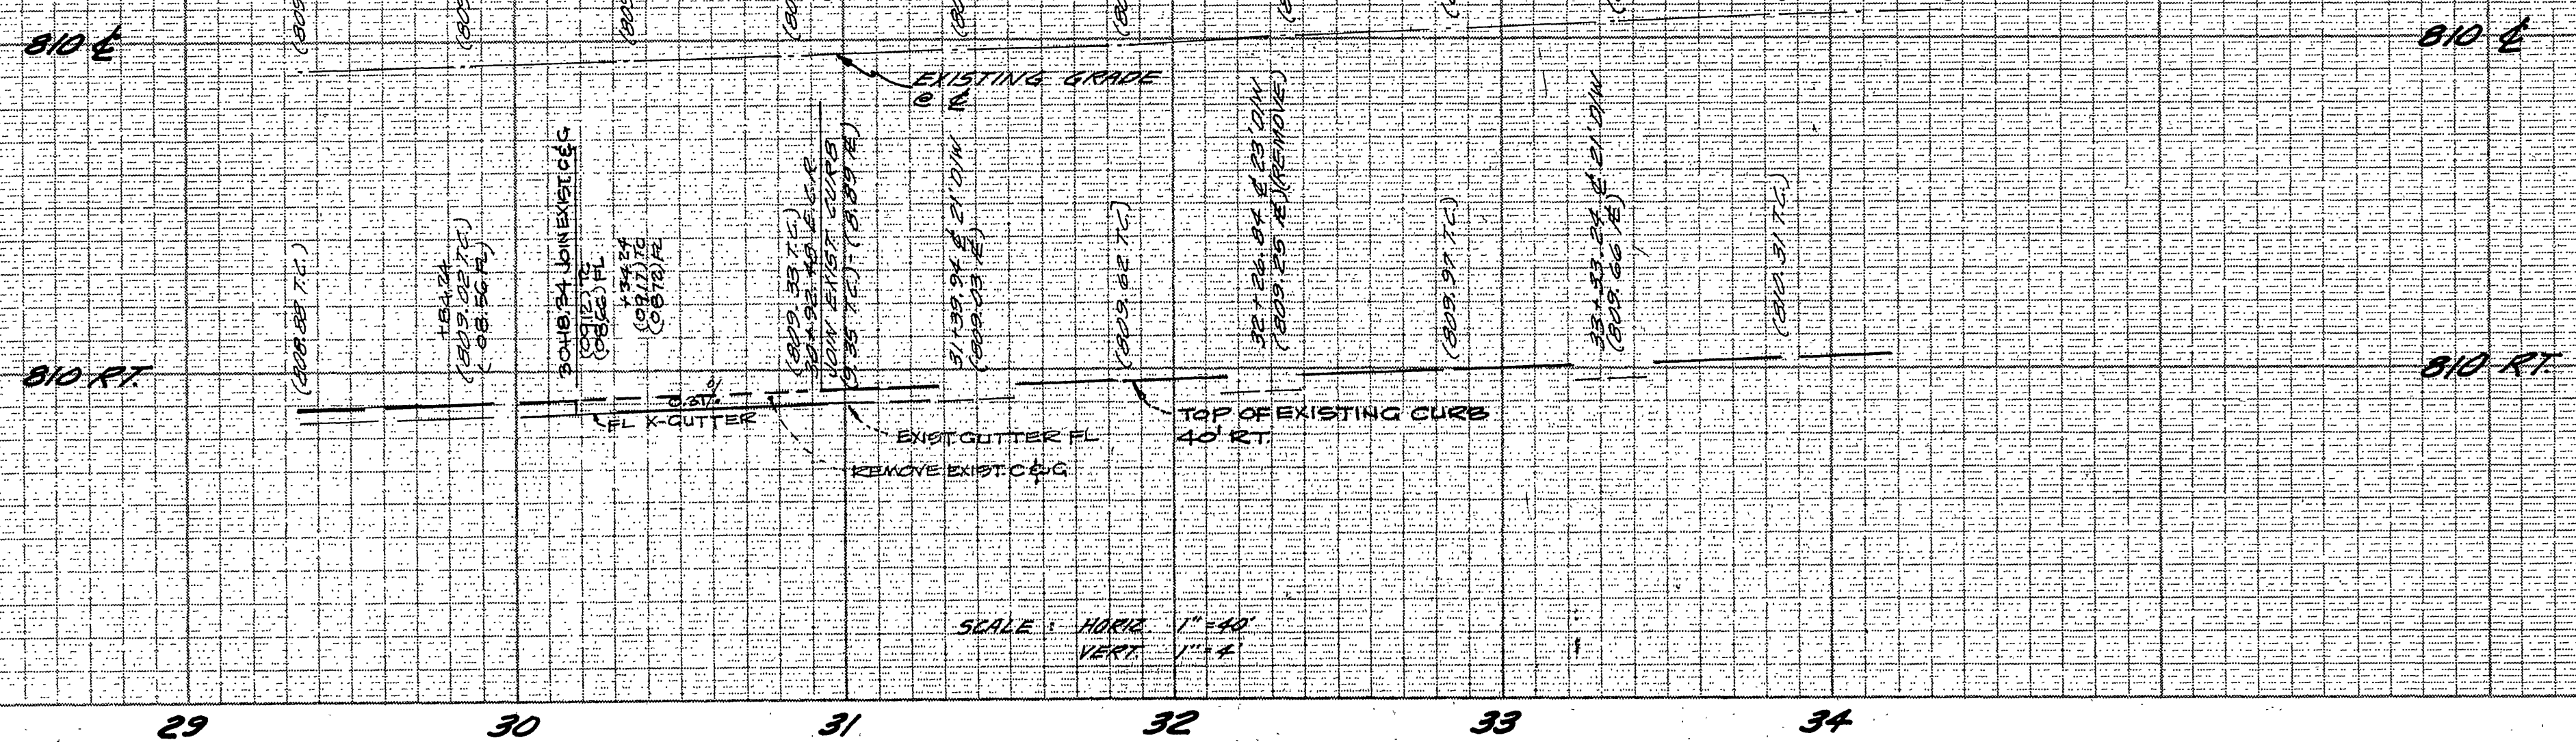 810 ℄
810 ℄
EXISTING GRADE
@ ℄
(808.88 T.C.)
+84.24
(809.02 T.C.)
(08.56 FL)
30+18.34 JOIN EXIST. C&G
(09.12) TC
(08.66) FL
+34.24
(09.17) TC
(08.72) FL
(809.33 T.C.)
30+92.40 E.C.R.
JOIN EXIST CURB
(9.35 T.C.)-(8.89 ℄)
31+39.94 ℄ 21' D/W
(809.03 ℄)
(809.62 T.C.)
32+26.84 ℄ 23' D/W
(809.25 ℄)(REMOVE)
(809.97 T.C.)
33+33.24 ℄ 21' D/W
(809.66 ℄)
(810.31 T.C.)
810 RT.
810 RT.
FL X-GUTTER
EXIST. GUTTER FL
REMOVE EXIST. C&G
TOP OF EXISTING CURB
40' RT.
SCALE : HORIZ. 1"=40'
VERT. 1"=4'
29 30 31 32 33 34